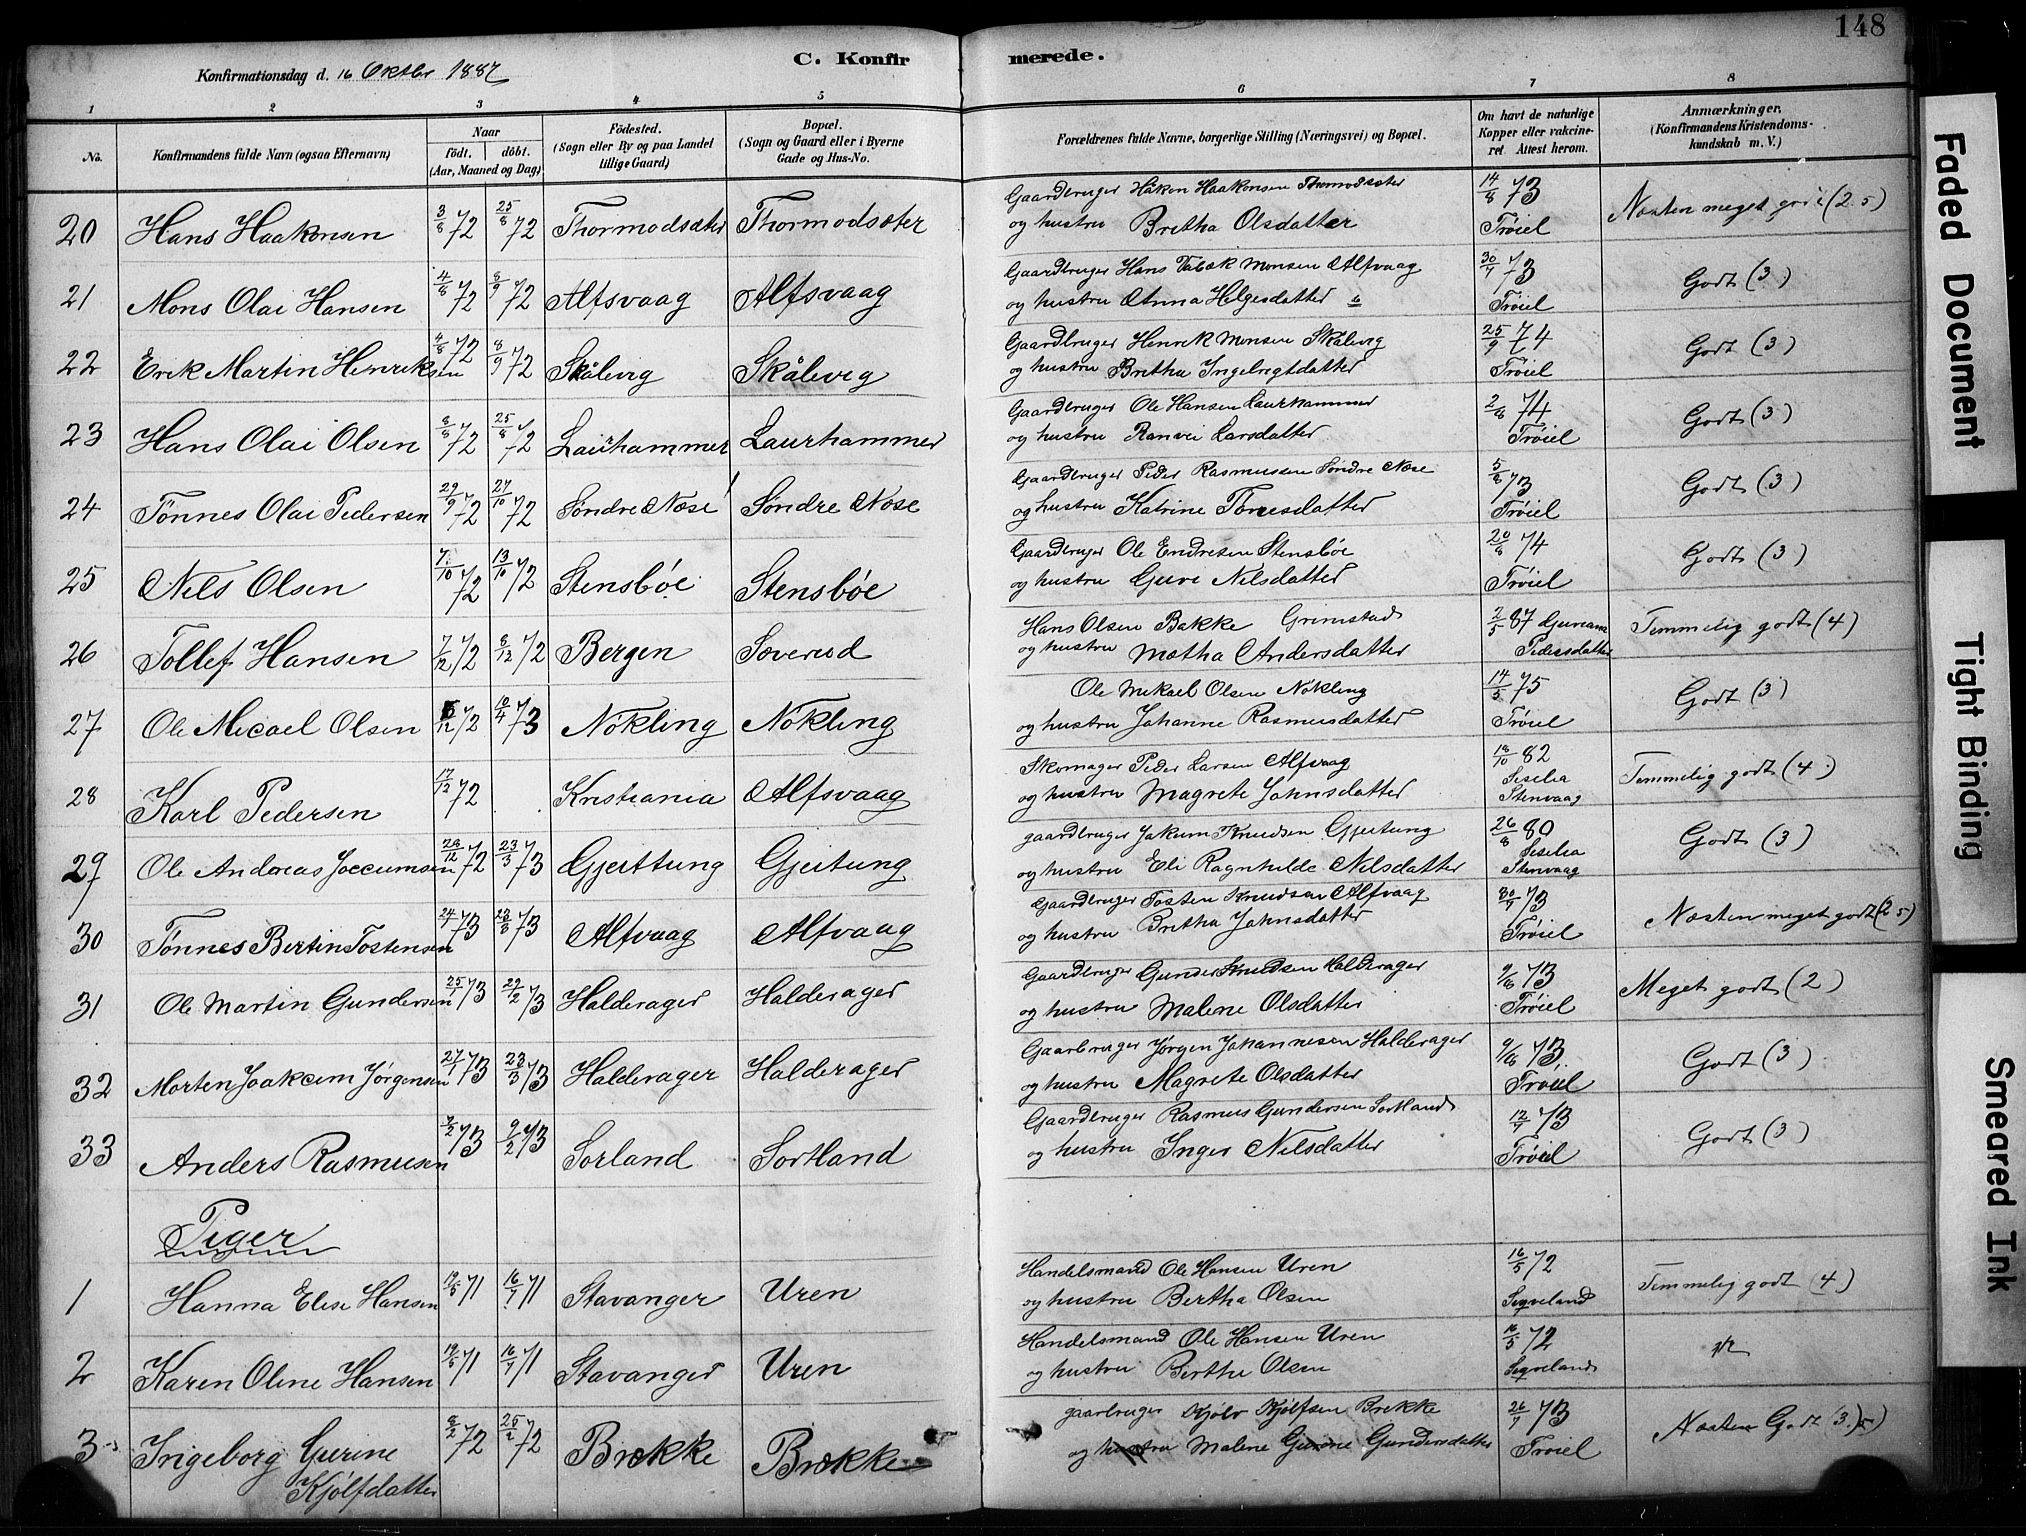 148
Konfirmationsdag d. 16 Oktbr 1887
C. Konfirmerede.
1 2 3 4 5 6 7 8
No.
Konfirmandens fulde Navn (ogsaa Efternavn)
Naar
födt. döbt.
(Aar, Maaned og Dag)
Födested.
(Sogn eller By og paa Landet
tillige Gaard)
Bopæl.
(Sogn og Gaard eller i Byerne
Gade og Hus-No.
Forældrenes fulde Navne, borgerlige Stilling (Næringsvei) og Bopæl.
Om havt de naturlige
Kopper eller vakcine-
ret. Attest herom.
Anmærkninger.
(Konfirmandens Kristendoms-
kundskab m. V.)
20 Hans Haakonsen 3/8 72 25/8 72 Thormodsæter Thormodsæter
Gaardbruger Håkon Haakonsen Thormodsæter
og hustru Bretha Olsdatter
14/8 73 Tröiel
Næsten meget godt (2.5)
21 Mons Olai Hansen 4/8 72 8/9 72 Alfsvaag Alfsvaag
Gaardbruger Hans Tabæk Monsen Alfvaag
og hustru Anna Helgesdatter
30/7 73 Tröiel
Godt (3)
22 Erik Martin Henriksen 4/8 72 8/9 72 Skålevig Skålevig
Gaardbruger Henrik Monsen Skålevig
og hustru Britha Ingebrigtdatter
25/9 74 Tröiel
Godt (3)
23 Hans Olai Olsen 8/8 72 25/8 72 Laurhammer Laurhammer
Gaardbruger Ole Hansen Laurhammer
og hustru Ranvei Larsdatter
2/8 74 Tröiel
Godt (3)
24 Tönnes Olai Pedersen 29/9 72 27/10 72 Söndre Nose Söndre Nose
Gaardbruger Peder Rasmussen Söndre Nose
og hustru Katrine Tönesdatter
5/8 73 Tröiel
Godt (3)
25 Nils Olsen 7/10 72 13/10 72 Stensböe Stensböe
Gaardbruger Ole Endresen Stensböe
og hustru Guve Nilsdatter
20/8 74 Tröiel
Godt (3)
26 Tollef Hansen 7/12 72 8/12 72 Bergen Sævereid
Hans Olsen Bakke Grimstad
og hustru Mætha Andersdatter
2/5 87 Gureana
Pedersdatter
Temmelig godt (4)
27 Ole Micael Olsen 12 72 10/4 73 Nökling Nökling
Ole Mikael Olsen Nökling
og hustru Johanne Rasmusdatter
14/5 75 Tröiel
Godt (3)
28 Karl Pedersen 17/12 72 Kristiania Alfsvaag
Skomager Peder Larsen Alfvaag
og hustru Magrete Johnsdatter
18/10 82 Seselia
Stenvaag
Temmelig godt (4)
29 Ole Andreas Joccumsen 28/12 72 23/3 73 Gjeittung Gjeitung
gaardbruger Jakum Knudsen Gjeitung
og hustru Eli Ragnhilde Nilsdatter
26/8 80 Seselia
Stenvaag
Godt (3)
30 Tönnes Bertin Tostensen 24/1 73 23/3 73 Alfvaag Alfvaag
Gaardbruger Tosten Knudsen Alfvaag
og hustru Bretha Johnsdatter
30/7 73 Tröiel
Næsten meget godt (2 5)
31 Ole Martin Gundersen 25/1 73 22/2 73 Halderager Halderager
Gaardbruger Gunder Knudsen Halderager
og hustru Malene Olsdatter
9/8 73 Tröiel
Meget godt (2)
32 Morten Joakcim Jörgensen 27/1 73 23/3 73 Halderager Halderager
Gaarbruger Jörgen Johannesen Halderager
og hustru Magrete Olsdatter
9/8 73 Tröiel
Godt (3)
33 Anders Rasmusen 2 73 9/2 73 Sorland Sortland
Gaardbruger Rasmus Gundersen Sortland
og hustru Inger Nilsdatter
12/7 73 Tröiel
Godt (3)
Piger
1 Hanna Elise Hansen 19/5 71 16/7 71 Stavanger Uren
Handelsmand Ole Hansen Uren
og hustru Bertha Olsen
16/5 72 Seqveland
Temmelig godt (4)
2 Karen Oline Hansen 19/5 71 16/7 71 Stavanger Uren
Handelsmand Ole Hansen Uren
og hustru Birthe Olsen
16/5 72 Seqveland
3 Ingeborg Gurine
Kjölfdatter
8/2 72 25/2 72 Brække Brække
gaarbruger Kjölv Kjölfsen Brekke
og hustru Malene Gurine Gundersdatter
26/7 73 Tröiel
Næsten Godt (3.5)
Faded Document
Tight Binding
Smeared Ink